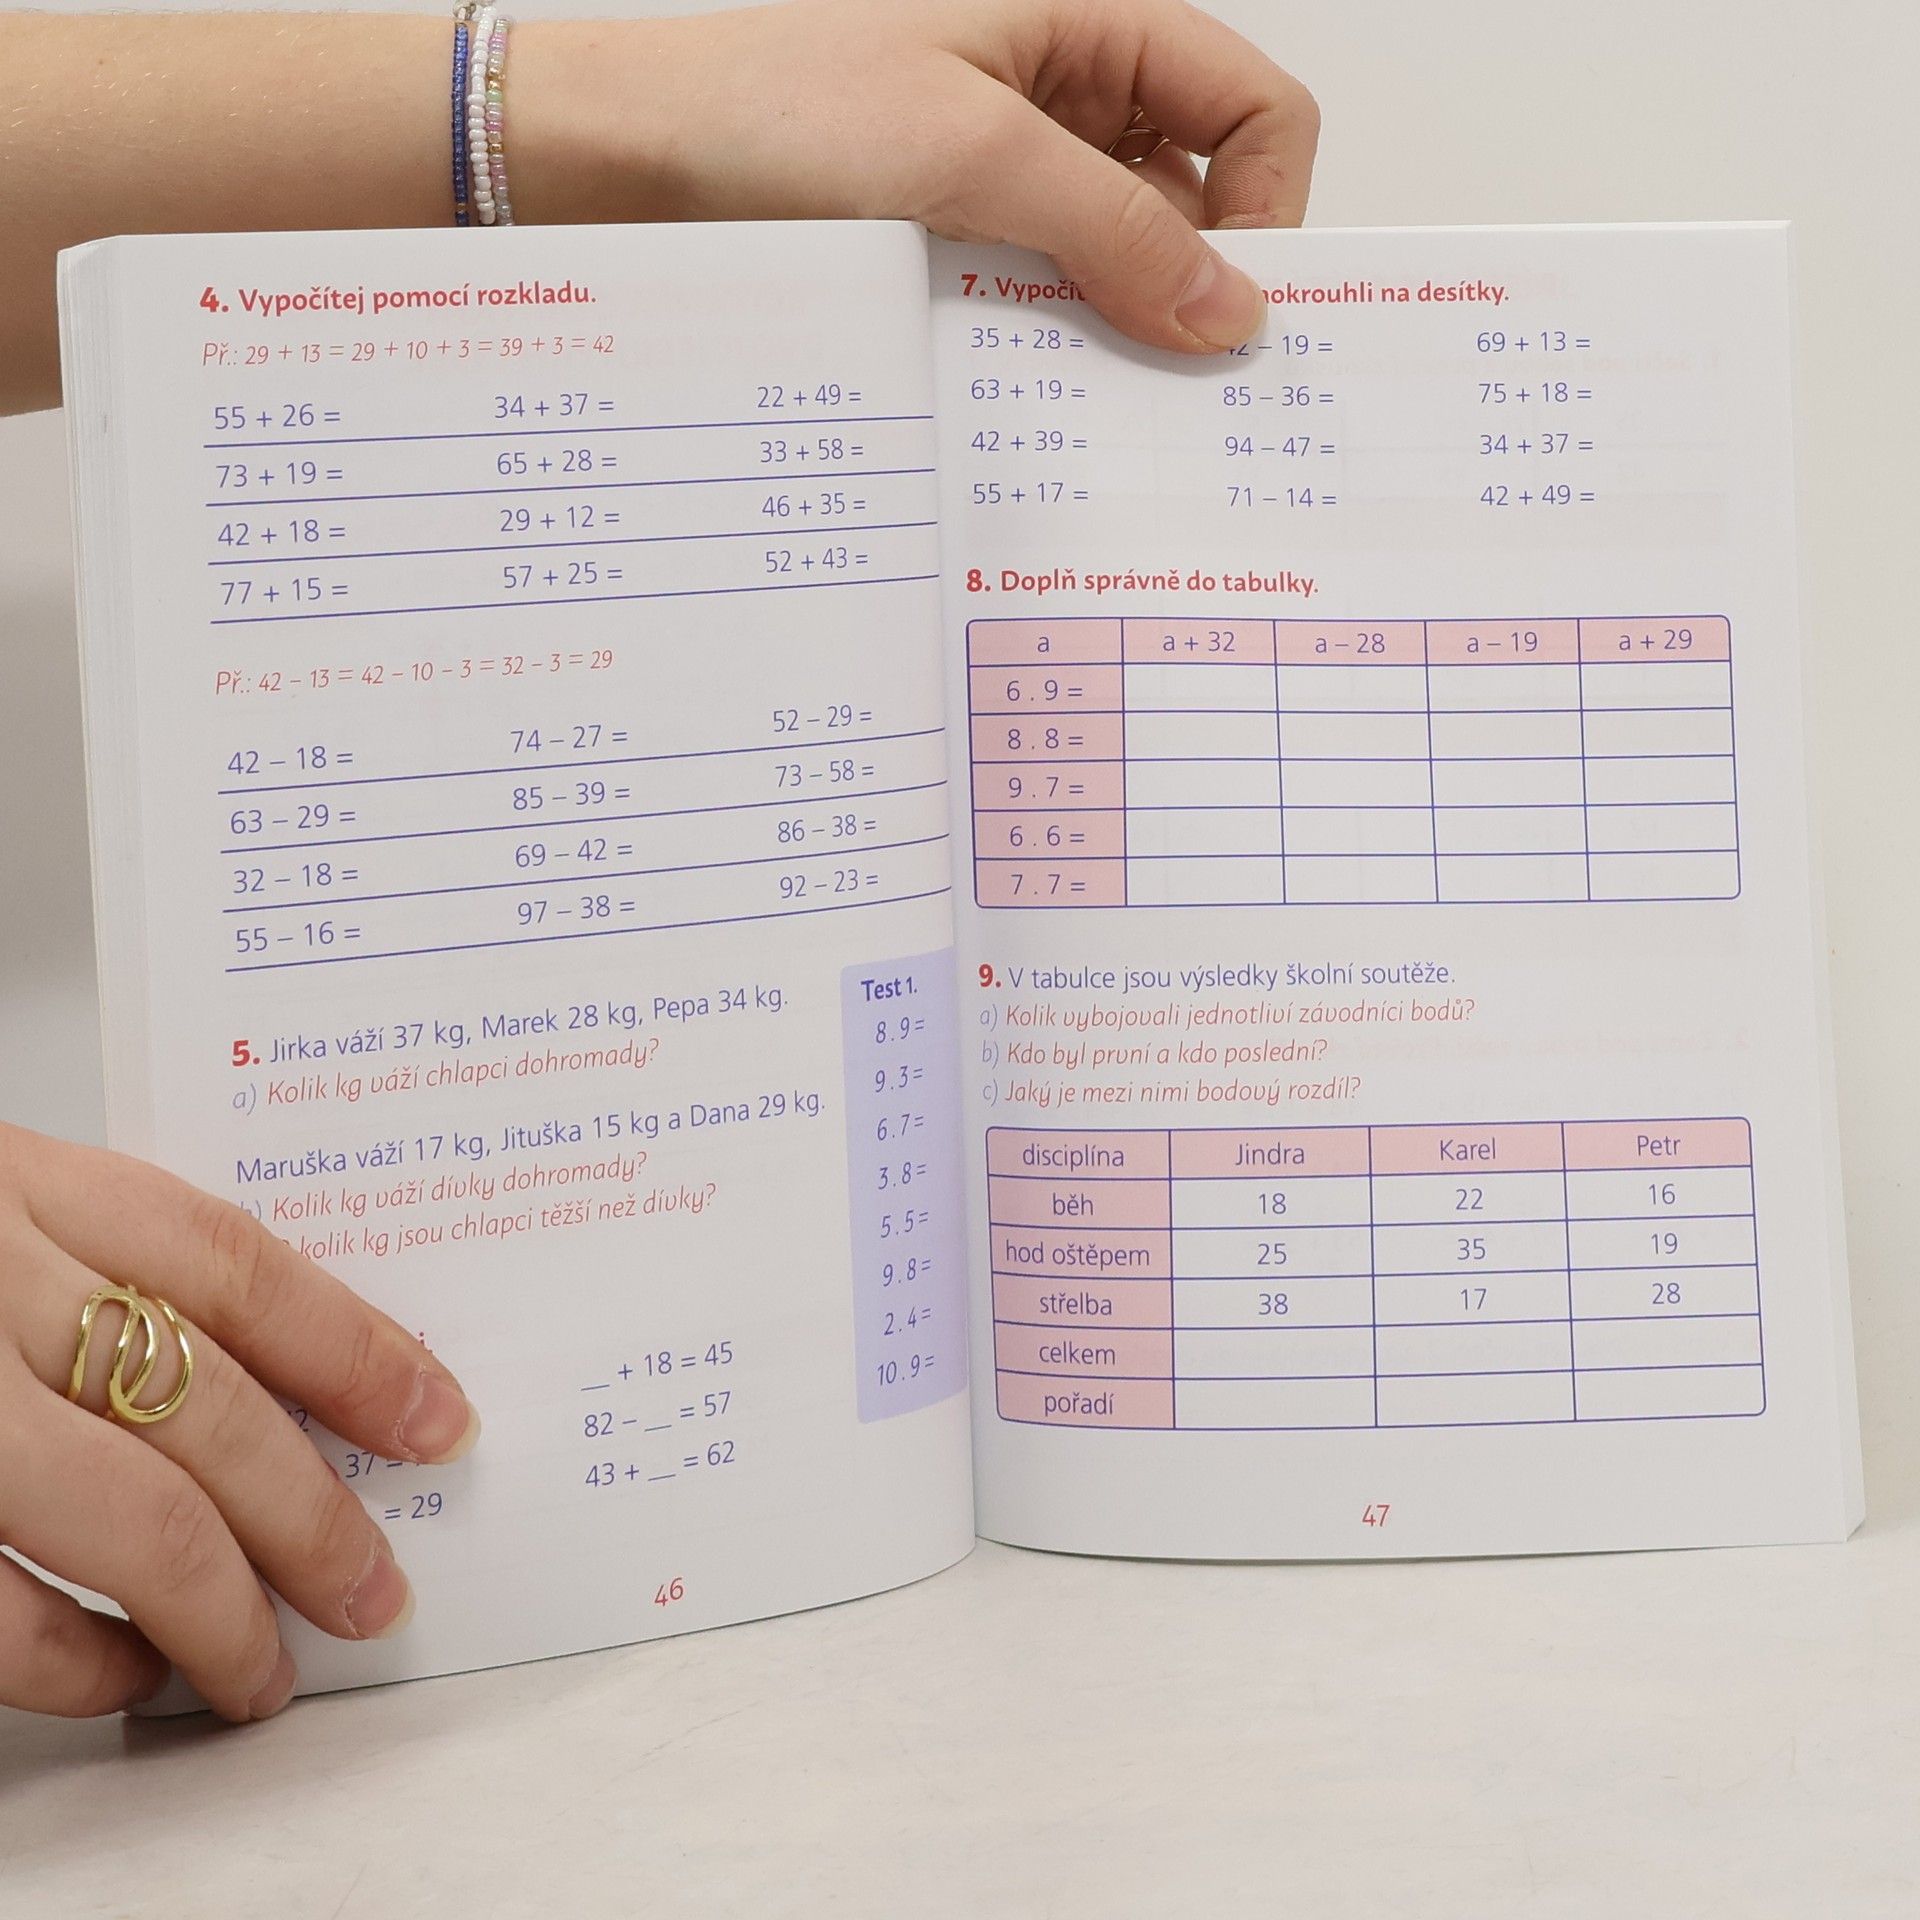 4. Vypočítej pomocí rozkladu.
Př.: 29 + 13 = 29 + 10 + 3 = 39 + 3 = 42
55 + 26 = 34 + 37 = 22 + 49 =
73 + 19 = 65 + 28 = 33 + 58 =
42 + 18 = 29 + 12 = 46 + 35 =
77 + 15 = 57 + 25 = 52 + 43 =
Př.: 42 – 13 = 42 – 10 – 3 = 32 – 3 = 29
42 – 18 = 74 – 27 = 52 – 29 =
63 – 29 = 85 – 39 = 73 – 58 =
32 – 18 = 69 – 42 = 86 – 38 =
55 – 16 = 97 – 38 = 92 – 23 =
5. Jirka váží 37 kg, Marek 28 kg, Pepa 34 kg.
a) Kolik kg váží chlapci dohromady?
Maruška váží 17 kg, Jituška 15 kg a Dana 29 kg.
Kolik kg váží dívky dohromady?
kolik kg jsou chlapci těžší než dívky?
__ + 18 = 45
82 – __ = 57
37 –
43 + __ = 62
= 29
Test 1.
8 . 9 =
9 . 3 =
6 . 7 =
3 . 8 =
5 . 5 =
9 . 8 =
2 . 4 =
10 . 9 =
46
7. na desítky.
35 + 28 = – 19 = 69 + 13 =
63 + 19 = 85 – 36 = 75 + 18 =
42 + 39 = 94 – 47 = 34 + 37 =
55 + 17 = 71 – 14 = 42 + 49 =
8. Doplň správně do tabulky.
a a + 32 a – 28 a – 19 a + 29
6 . 9 =
8 . 8 =
9 . 7 =
6 . 6 =
7 . 7 =
9. V tabulce jsou výsledky školní soutěže.
a) Kolik vybojovali jednotliví závodníci bodů?
b) Kdo byl první a kdo poslední?
c) Jaký je mezi nimi bodový rozdíl?
disciplína Jindra Karel Petr
běh 18 22 16
hod oštěpem 25 35 19
střelba 38 17 28
celkem
pořadí
47